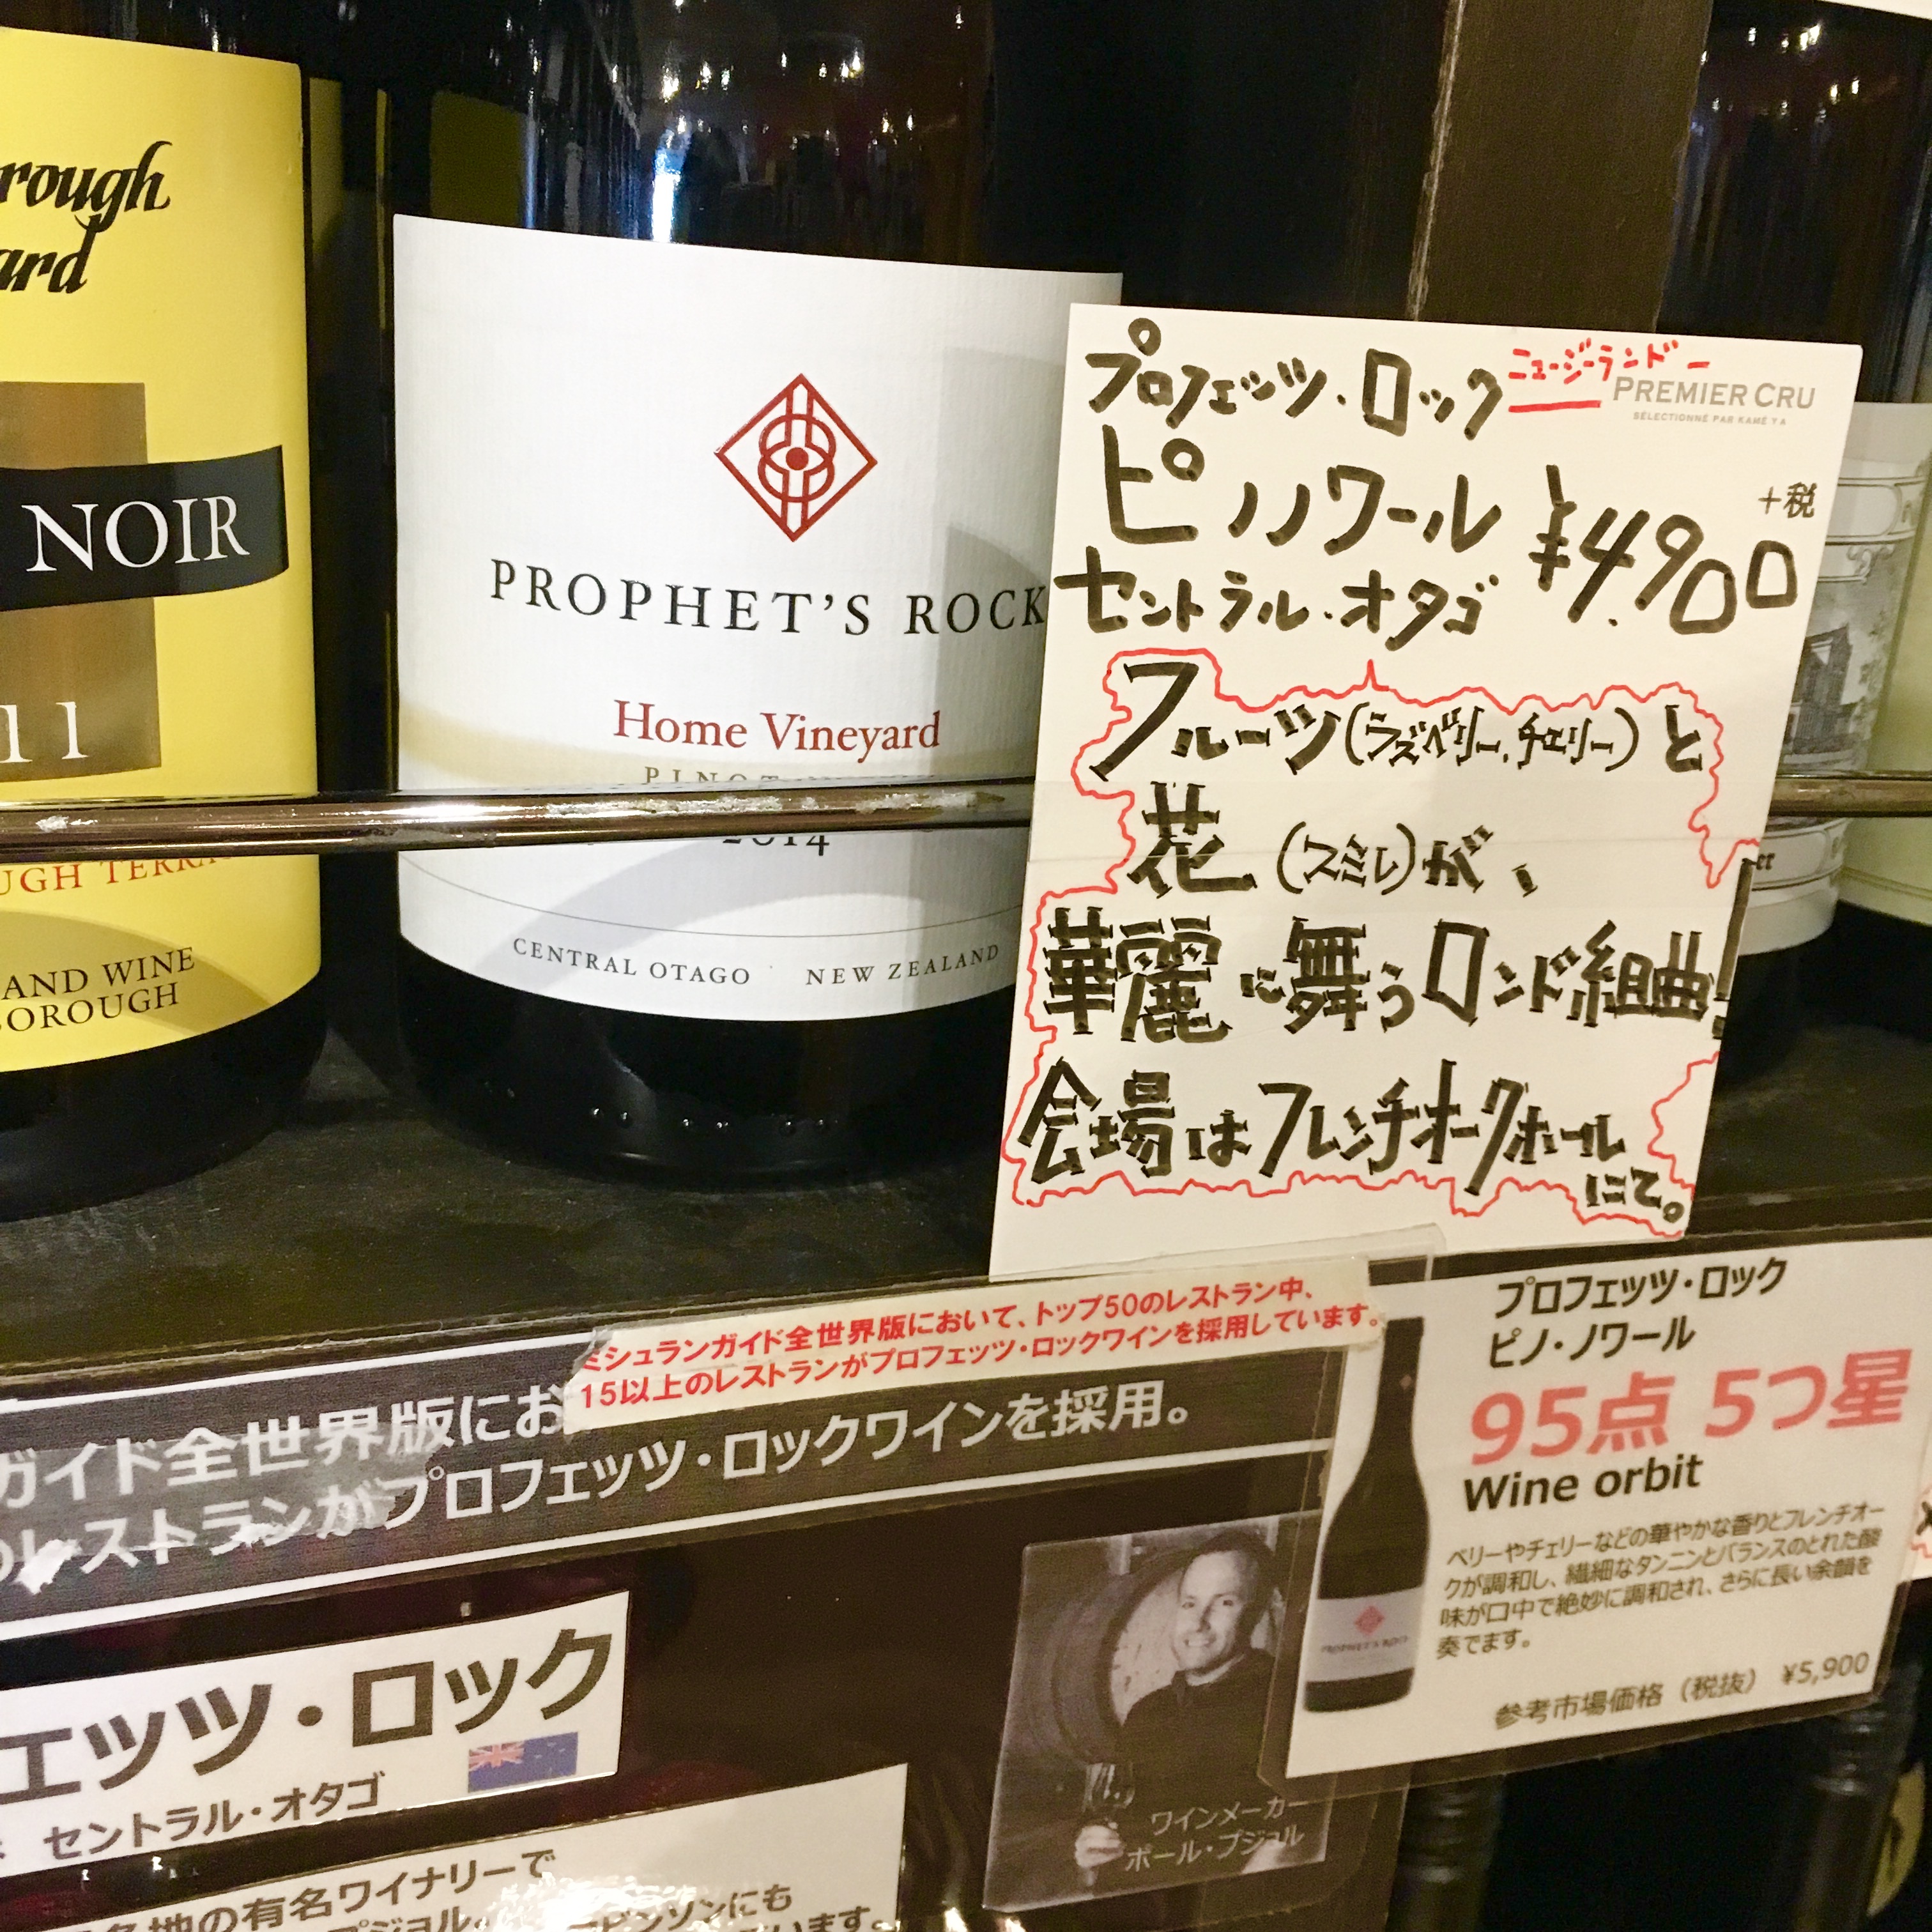 rough
ard
NOIR
11
UGH TERRA
AND WINE
BOROUGH
PROPHET'S ROCK
Home Vineyard
PINOT
2014
CENTRAL OTAGO NEW ZEALAND
プロフェッツ・ロック ニュージーランドー
PREMIER CRU
SÉLECTIONNÉ PAR KAMÉYA
ピノノワール
+税
¥4,900
セントラル・オタゴ
フルーツ(ラズベリー、チェリー)と
花(スミレ)が、
華麗に舞うロンド組曲!
会場はフレンチオークホール
にて。
ミシュランガイド全世界版において、トップ50のレストラン中、
15以上のレストランがプロフェッツ・ロックワインを採用しています。
ガイド全世界版にお
のレストランがプロフェッツ・ロックワインを採用。
プロフェッツ・ロック
ピノ・ノワール
95点 5つ星
Wine orbit
ベリーやチェリーなどの華やかな香りとフレンチオー
クが調和し、繊細なタンニンとバランスのとれた酸
味が口中で絶妙に調和され、さらに長い余韻を
奏でます。
参考市場価格(税抜) ¥5,900
PROPHET'S ROCK
ェッツ・ロック
セントラル・オタゴ
ワインメーカー
ポール・プジョル
各地の有名ワイナリーで
プジョル。
ンソンにも
います。
er